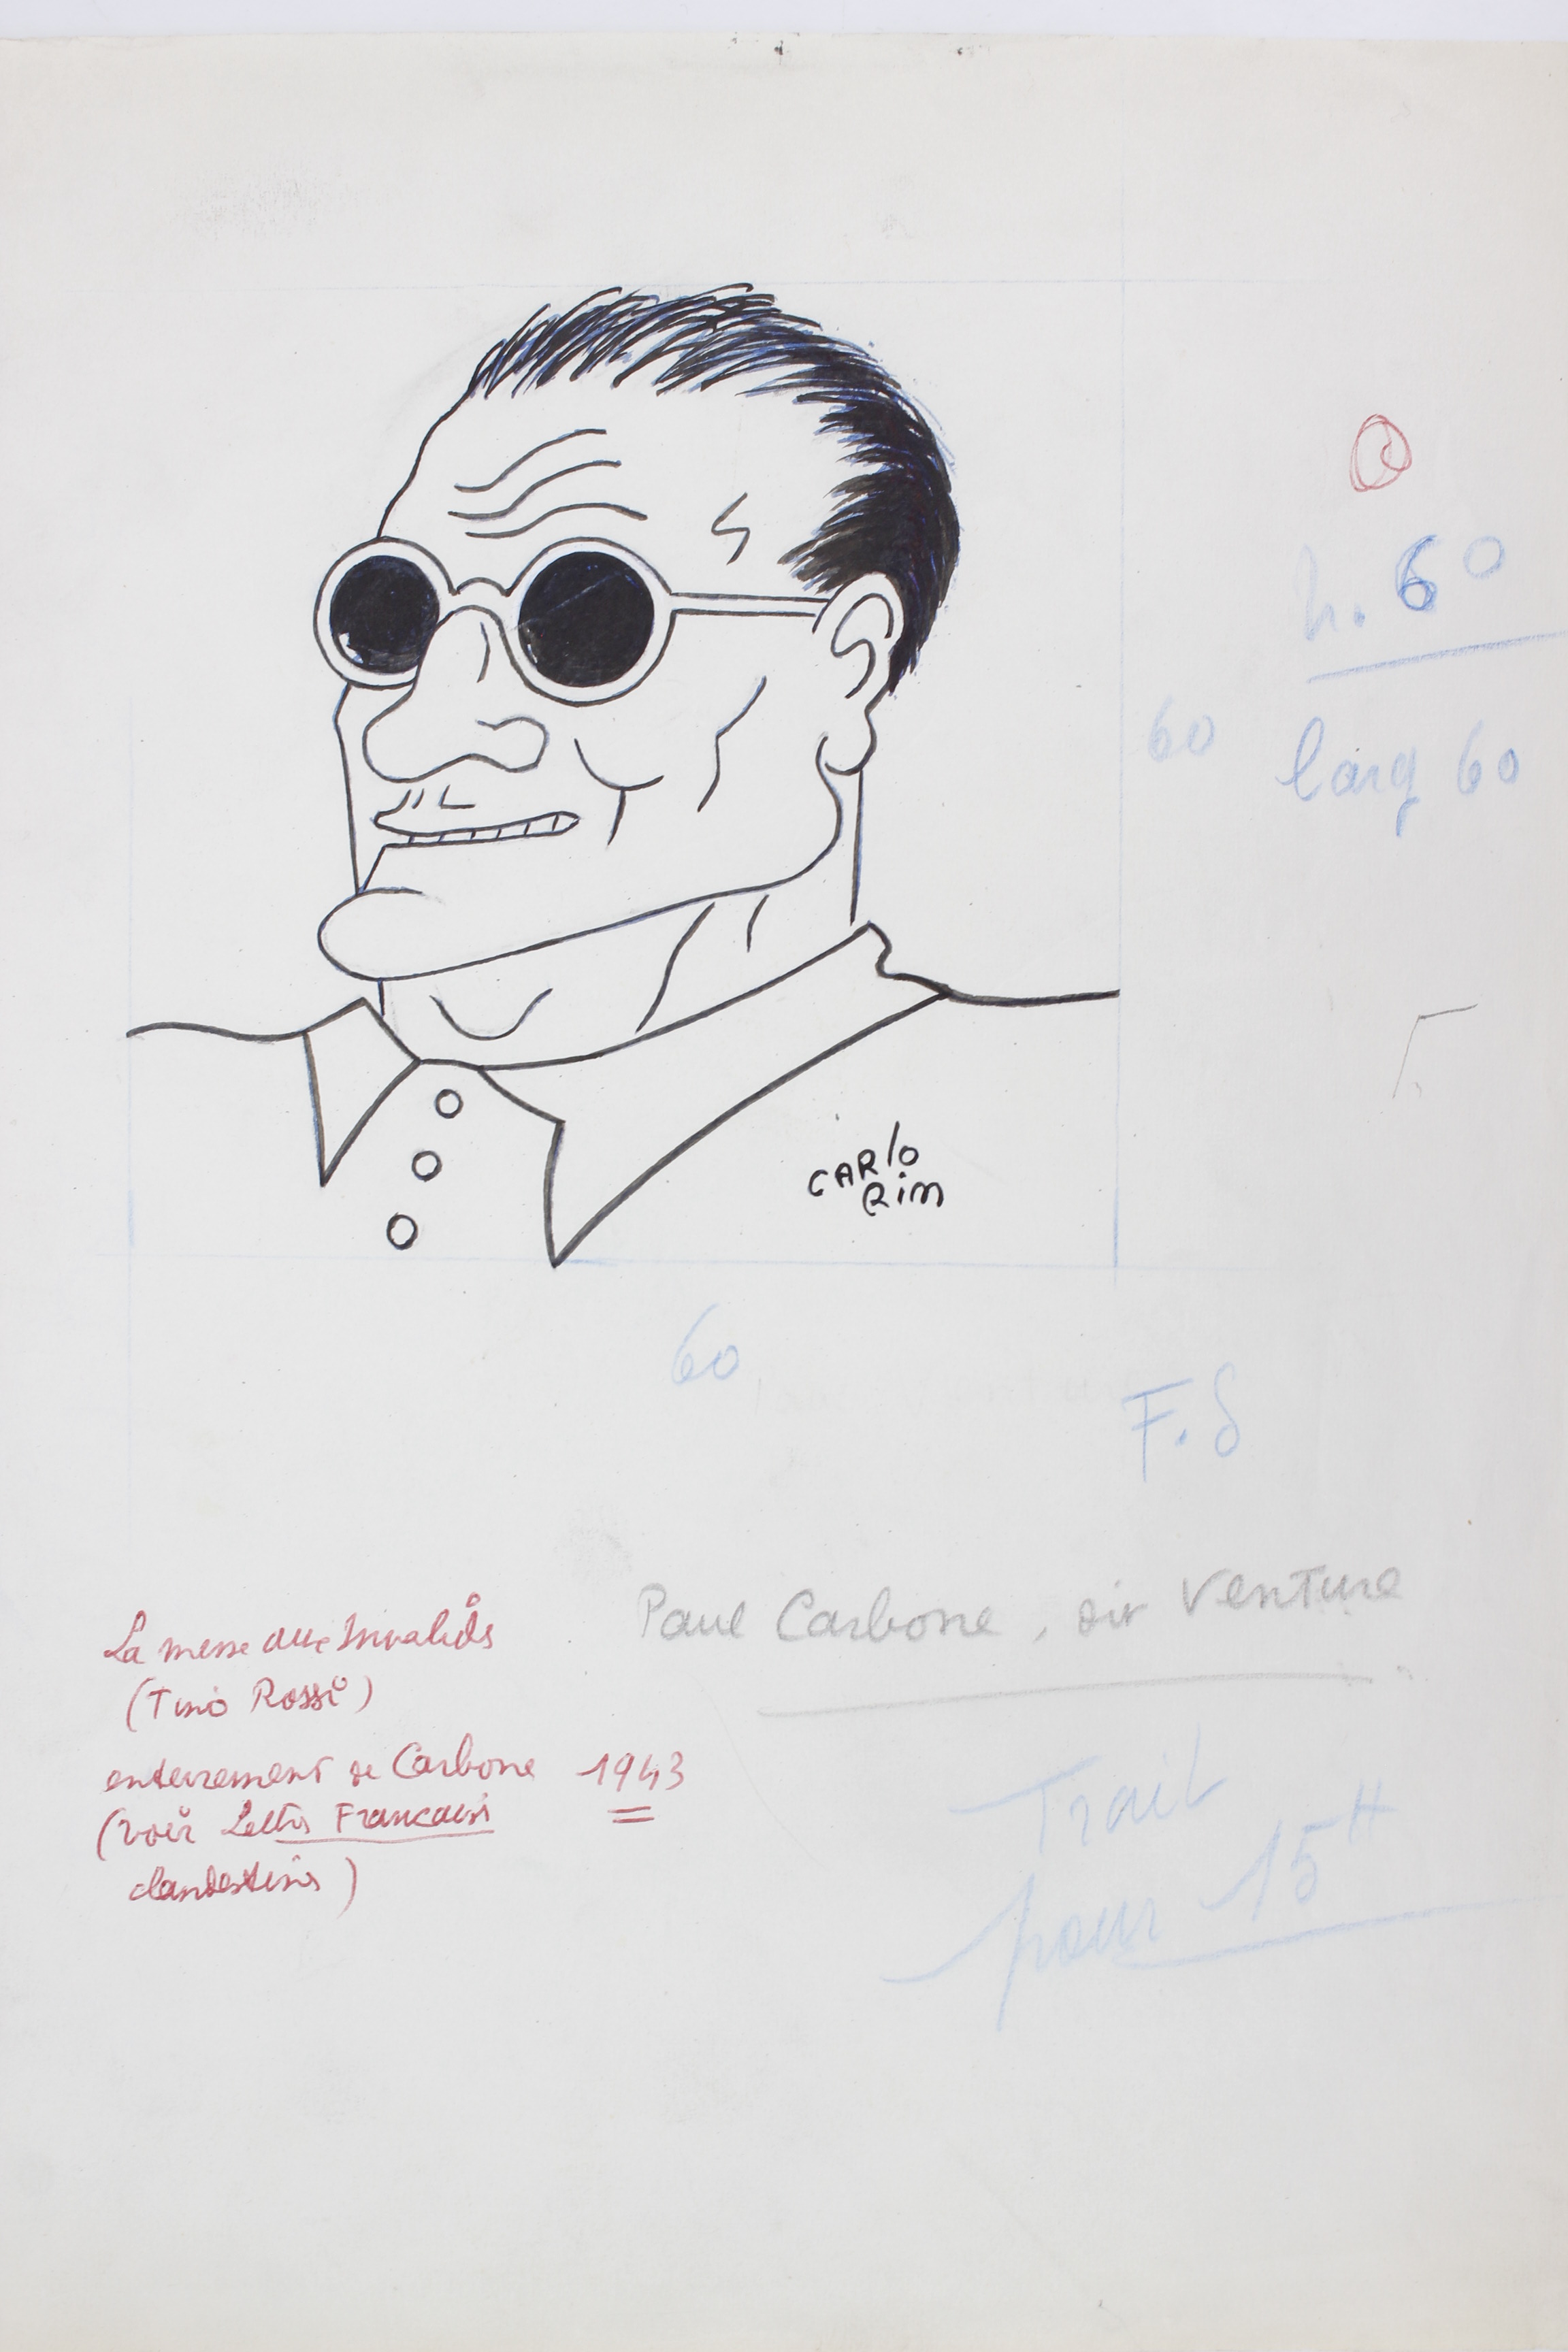 h. 60
60
larg 60
CARlO
RiM
60
F.S
Paul Carbone, dit Venture
La messe aux Invalides
(Tino Rossi)
enterrement de Carbone 1943
(voir Lettres Françaises
clandestines)
Trait
pour 15H